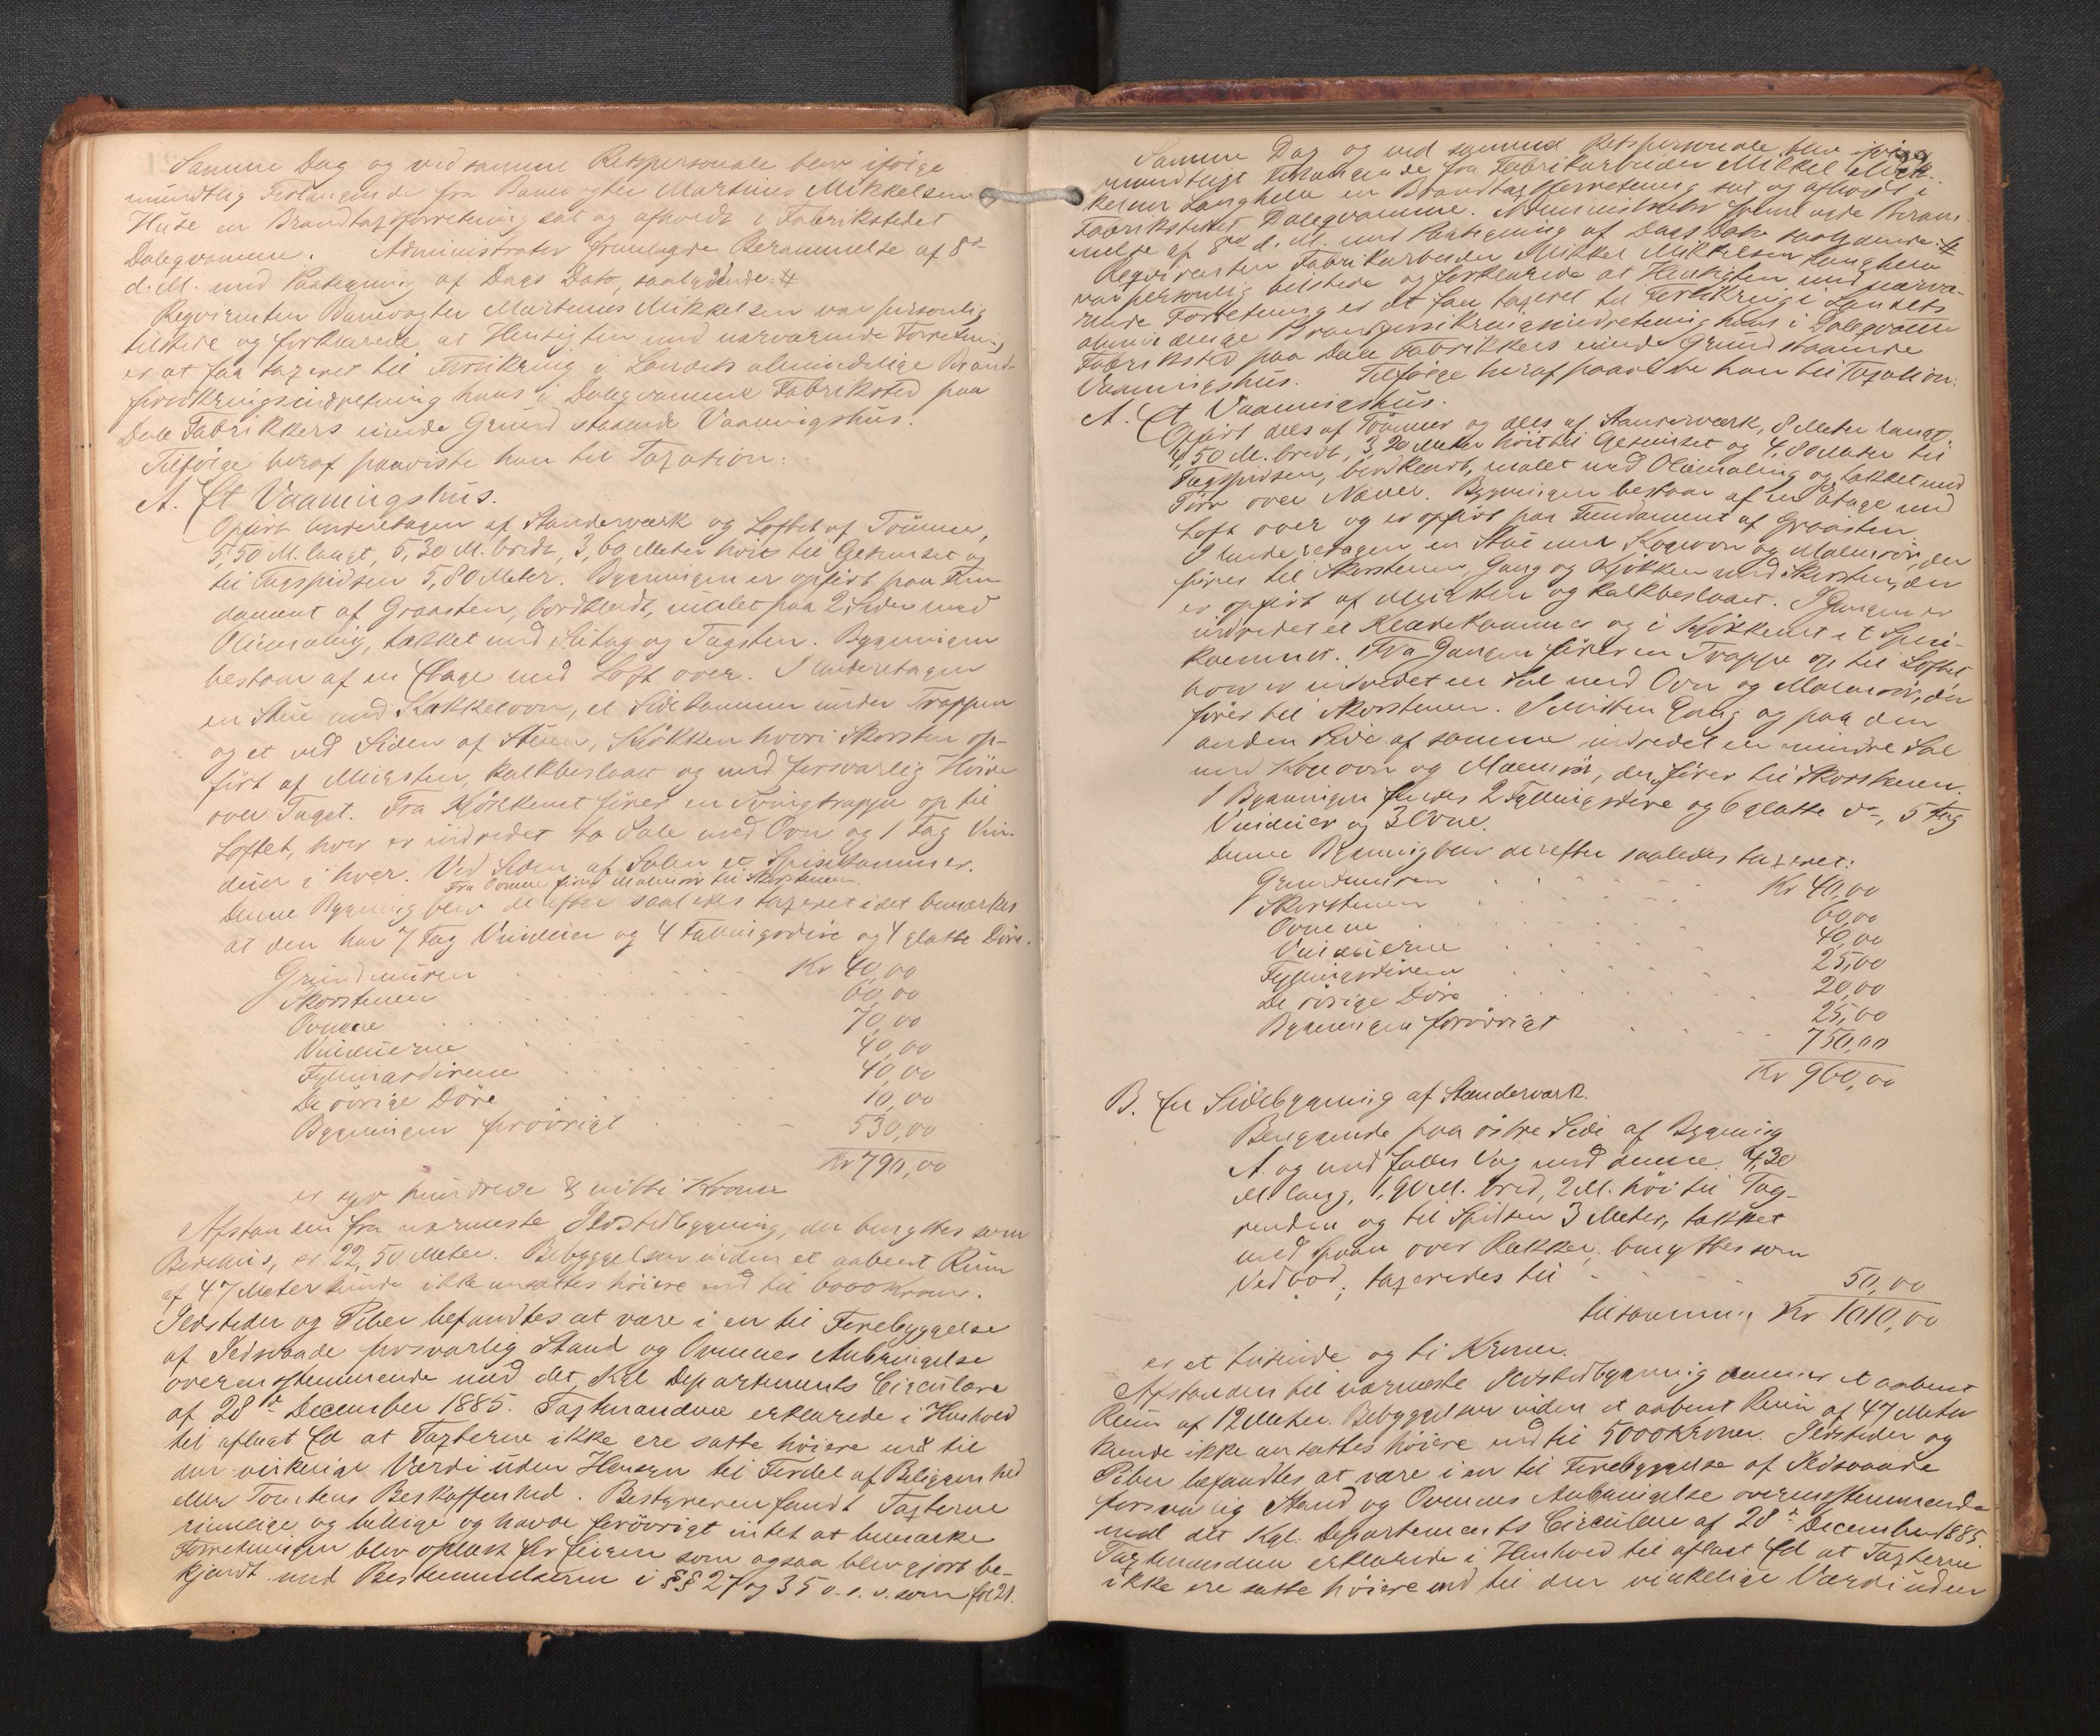 Samme Dag og ved samme Retspersonale blev ifølge
mundtlig Forlangende fra Banevogter Martinus Mikkelsen
Huse en Brandtaxtforretning sat og afholdt i Fabrikstedet
Dalegvamme. Administrator fremlagde Berammelse af 8de
d. M. med Paategning af Dags Dato, saalydende: #
Reqvirenten Banevogter Martinus Mikkelsen var personlig
tilstede og forklarede at Hensigten med nærværende Forretning
er at faa taxeret til Forsikring i Landets almindelige Brand-
forsikringsindretning hans i Dalegvamme Fabriksted paa
Dale Fabrikkers eiende Grund staaende Vaaningshus.
Tilfølge heraf paaviste han til Taxation:
A. Et Vaaningshus.
Opført underetagen af Standerværk og Loftet af Tømmer,
5,50 M. langt, 5,30 M. bredt, 3,60 Meter høit til Gesimset og
til Tagspidsen 5,80 Meter. Bygningen er opført paa Fun-
dament af Graasten, bordklædt, malet paa 2 Sider med
Oliemaling, tækket med Sutag og Tagsten. Bygningen
bestaar af en Etage med Loft over. I Underetagen
en Stue med Kakkelovn, et Sidekammer under Trappen
og et ved Siden af Stuen, Kjøkken hvori Skorsten op-
ført af Mursten, kalkbeslaaet og med forsvarlig Høide
over Taget. Fra Kjøkkenet fører en Svingtrappe op til
Loftet, hvor er indredet to Sale med Ovn og 1 Fag Vin-
duer i hver. Ved Siden af Salen et Spisekammer.
Fra Ovnene fører Malmrør til Skorstenen.
Denne Bygning blev derefter saaledes taxeret idet bemærkes
at den har 7 Fag Vinduer og 4 Fyllingsdøre og 4 glatte Døre.
Grundmuren Kr 40,00
Skorstenen 60,00
Ovnene 70,00
Vinduerne 40,00
Fyllingsdørene 40,00
De øvrige Døre 10,00
Bygningen forøvrigt 530,00
Kr 790,00
er syv hundrede & nitti Kroner
Afstanden fra nærmeste Ildstedbygning, der benyttes som
Bedehus, er 22,50 Meter. Bebyggelsen inden et aabent Rum
af 47 Meter kunde ikke ansættes høiere end til 6000 Kroner.
Ildsteder og Piber befandtes at være i en til Forebyggelse
af Ildsvaade forsvarlig Stand og Ovnenes Anbringelse
overensstemmende med det Kgl Departements Circulære
af 28de December 1885. Taxtmændene erklærede i Henhold
til aflagt Ed at Taxterne ikke ere satte høiere end til
den virkelige Værdi uden Hensyn til Fordel af Beliggenhed
eller Tomtens Beskaffenhed. Bestyreren fandt Taxterne
rimelige og billige og havde forøvrigt intet at bemærke
Forretningen blev oplæst for Eieren som ogsaa blev gjort be-
kjendt med Bestemmelserne i §§ 27 og 35 o. s. v. som fol 21.
Samme Dag og ved samme Retspersonale blev ifølge
mundtligt Forlangende fra Fabrikarbeider Mikkel Mik-
kelsen Langhelm en Brandtaxtforretning sat og afholdt i
Fabrikstedet Dalegvamme. Administrator fremlagde Beram-
melse af 8de d. M. med Paategning af Dags Dato saalydende: #
Reqvirenten Fabrikarbeider Mikkel Mikkelsen Langhelm
var personlig tilstede og forklarede at Hensigten med nærvæ-
rende Forretning er at faa taxeret til Forsikring i Landets
almindelige Brandforsikringsindretning hans i Dalegvamme
Fabriksted paa Dale Fabrikkers eiende Grund staaende
Vaaningshus. Tilfølge heraf paaviste han til Taxation:
A. Et Vaaningshus.
Opført dels af Tømmer og dels af Standerværk, 8 Meter langt,
4,50 M. bredt, 3,20 Meter høit til Gesimset og 4,80 Meter til
Tagspidsen, bordklædt, malet med Oliemaling og tækket med
Torv over Næver. Bygningen bestaar af en Etage med
Loft over og er opført paa Fundament af Graasten.
I Underetagen en Stue med Kogeovn og Malmrør, der
fører til Skorstenen, Gang og Kjøkken med Skorsten, der
er opført af Mursten og kalkbeslaaet. I Gangen er
indredet et Klædekammer og i Kjøkkenet et Spise-
kammer. Fra Gangen fører en Trappe op til Loftet
hvor er indredet en Sal med Ovn og Malmrør, der
fører til Skorstenen. Desuden Gang og paa den
anden Side af samme indredet en mindre Sal
med Kogeovn og Malmrør, der fører til Skorstenen.
I Bygningen findes 2 Fyllingsdøre og 6 glatte do, 5 Fag
Vinduer og 3 Ovne.
Denne Bygning blev derefter saaledes taxeret:
Grundmuren Kr 40,00
Skorstenen 60,00
Ovnene 40,00
Vinduerne 25,00
Fyllingsdørene 20,00
De øvrige Døre 25,00
Bygningen forøvrigt 750,00
Kr 960,00
B. En Sidebygning af Standerværk.
Beliggende paa østre Side af Bygning
A. og med fælles Væg med denne. 4,30
M. lang, 1,90 M. bred, 2 M. høi til Tag-
renden og til Spidsen 3 Meter, tækket
med Spaan over Rækker, benyttes som
Vedbod; taxeredes til 50,00
tilsammen Kr 1010,00
er et tusinde og ti Kroner.
Afstanden til nærmeste Ildstedbygning danner et aabent
Rum af 12 Meter. Bebyggelsen inden et aabent Rum af 47 Meter
kunde ikke ansættes høiere end til 5000 Kroner. Ildsteder og
Piber befandtes at være i en til Forebyggelse af Ildsvaade
forsvarlig Stand og Ovnenes Anbringelse overensstemmende
med det Kgl. Departements Circulære af 28de December 1885.
Taxtmændene erklærede i Henhold til aflagt Ed at Taxterne
ikke ere satte høiere end til den virkelige Værdi uden